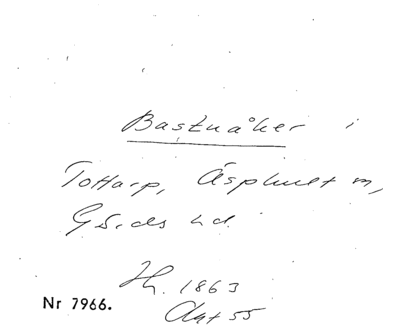 Bastuåker i
Tottarp, Äsphult m,
Gärds hd.
Hh. 1863
Akt 55
Nr 7966.